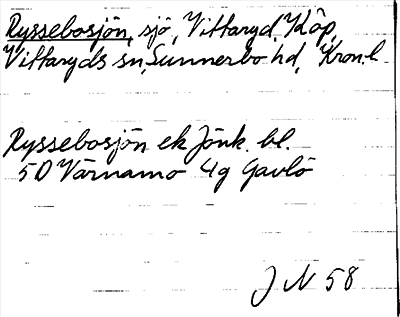 Ryssebosjön, sjö, Vittaryd, Köp,
Vittaryds sn, Sunnerbo hd, Kron.l.
Ryssebosjön ek Jönk. bl.
5D Värnamo 4g Gavlö
J N 58